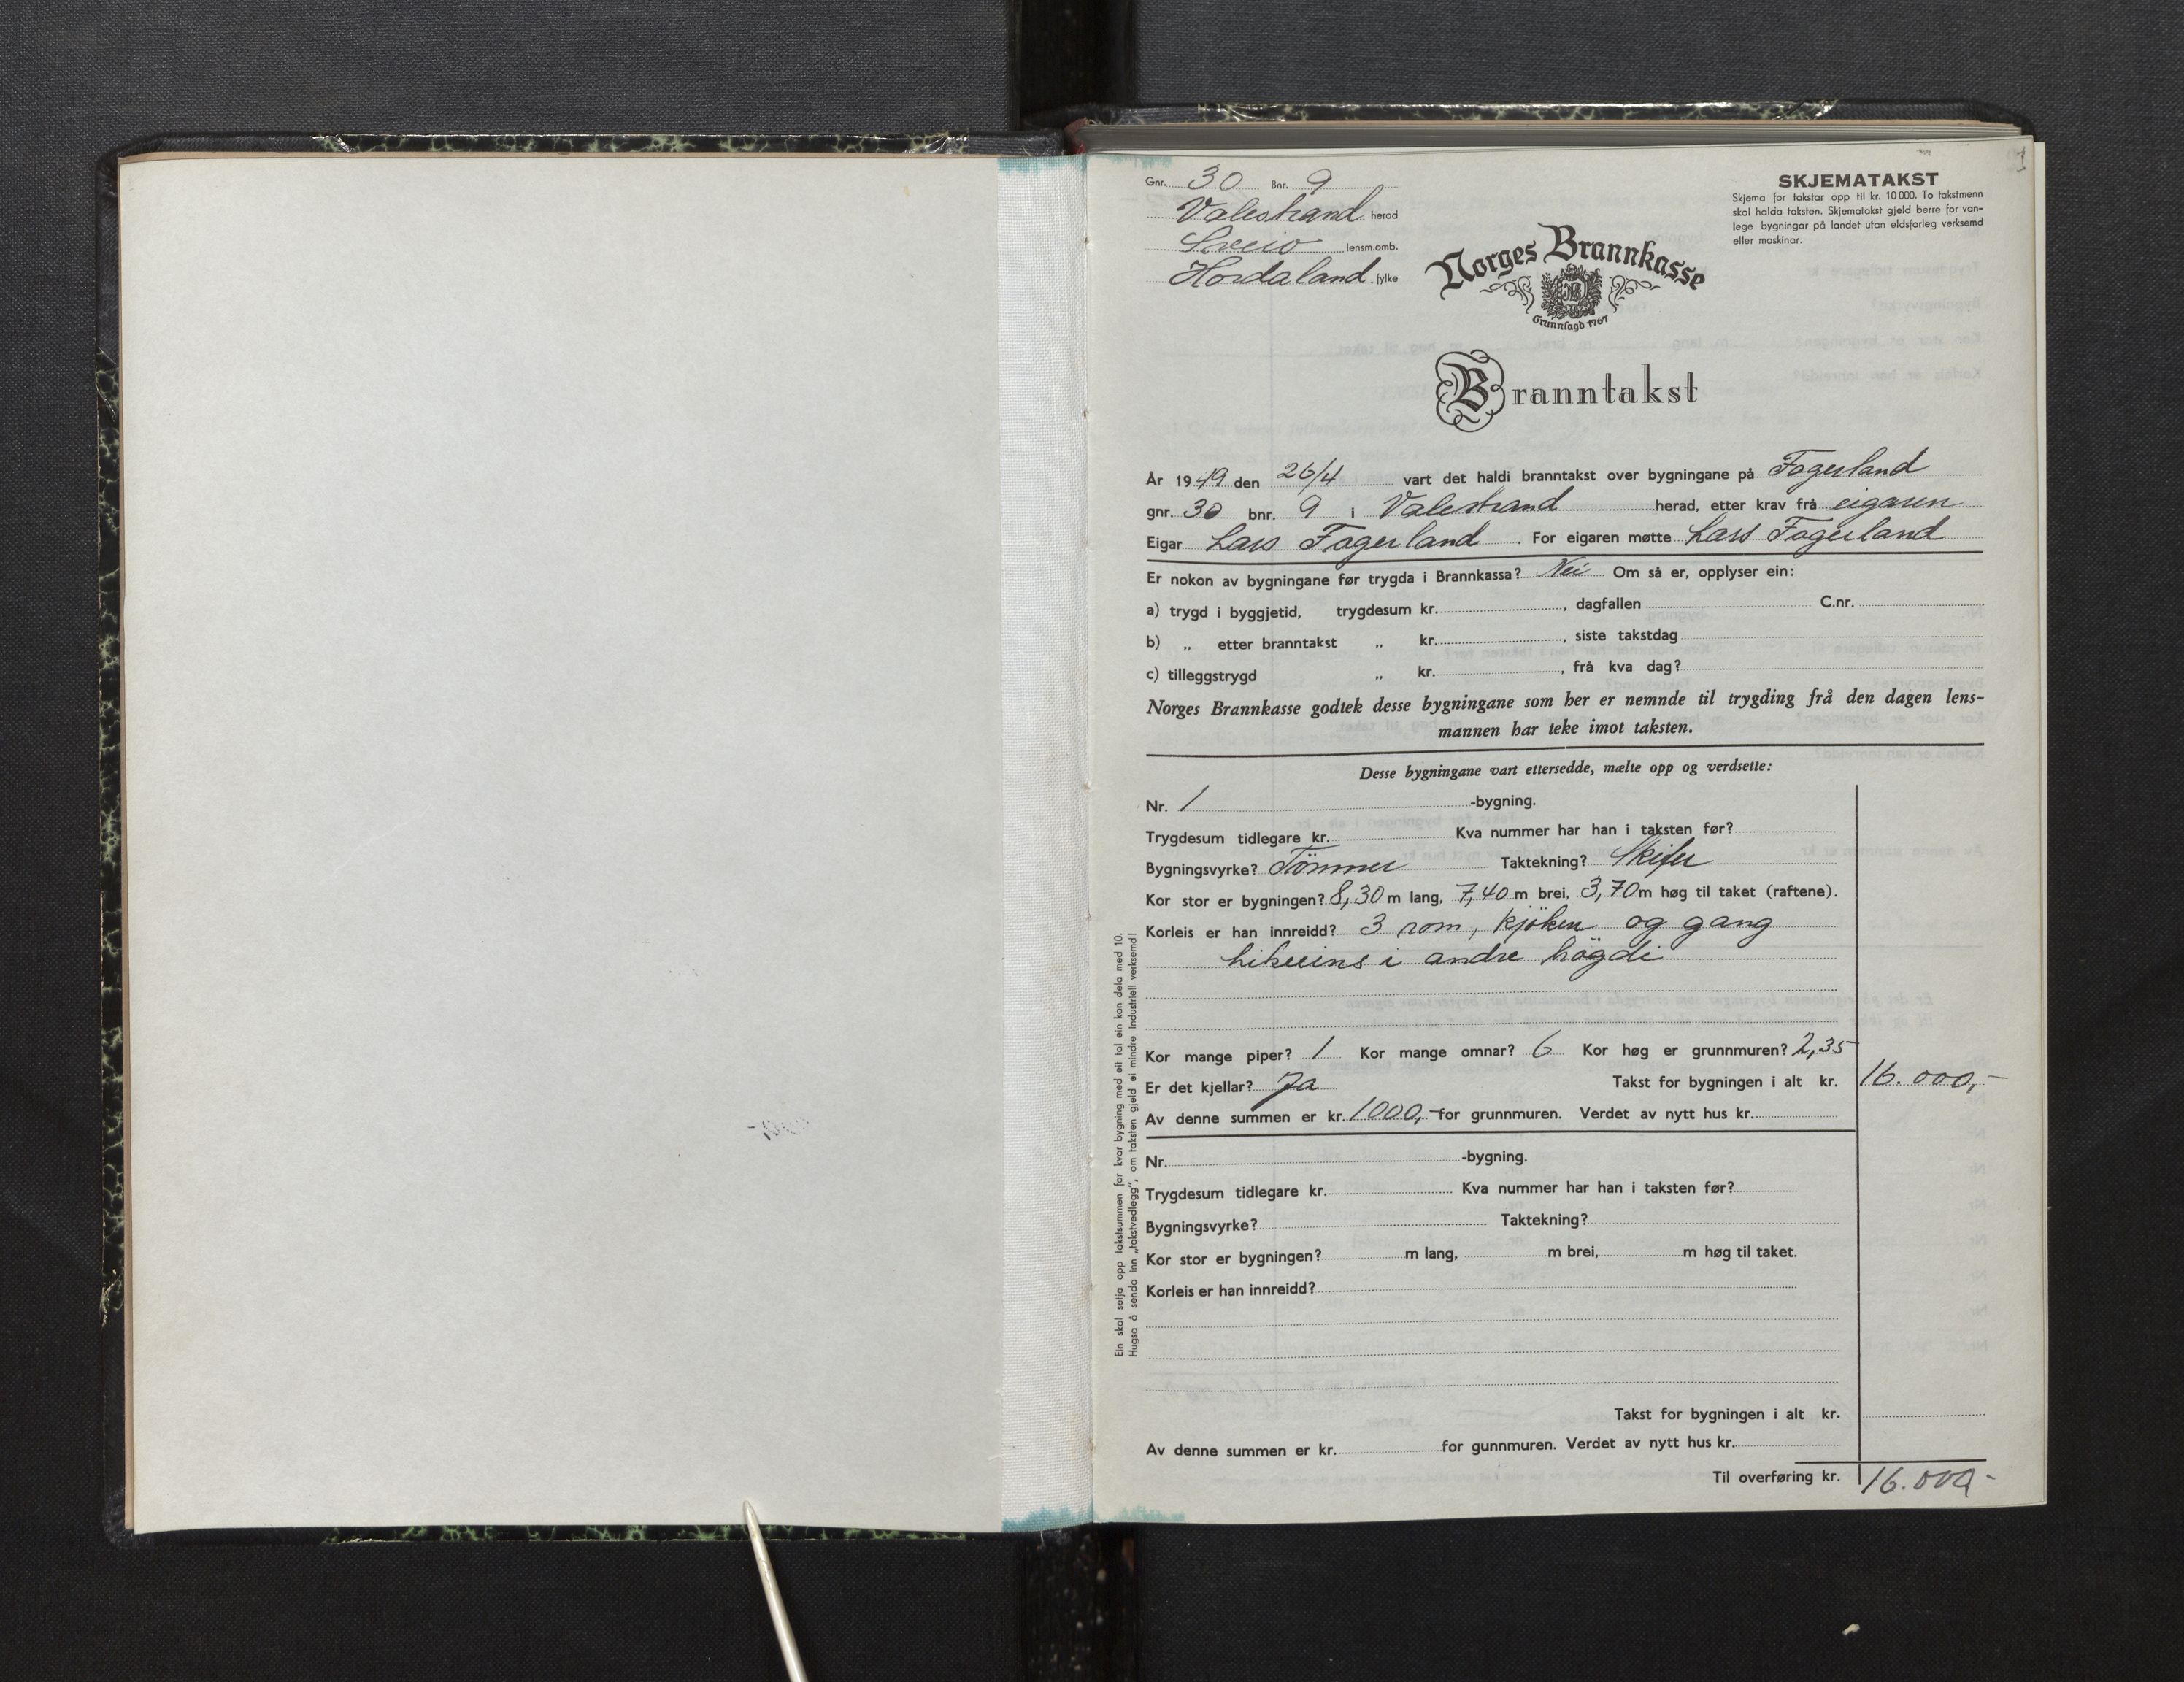 1
Gnr. 30 Bnr. 9
Valestrand herad
Sveio lensm.omb.
Hordaland fylke
SKJEMATAKST
Skjema for takstar opp til kr. 10 000. To takstmenn
skal halda taksten. Skjematakst gjeld berre for van-
lege bygningar på landet utan eldsfarleg verksemd
eller maskinar.
Norges Brannkasse
Grunnlagd 1767
Branntakst
År 1949 den 26/4 vart det haldi branntakst over bygningane på Fagerland
gnr. 30 bnr. 9 i Valestrand herad, etter krav frå eigaren
Eigar Lars Fagerland. For eigaren møtte Lars Fagerland
Er nokon av bygningane før trygda i Brannkassa? Nei Om så er, opplyser ein:
a) trygd i byggjetid, trygdesum kr. , dagfallen C.nr.
b) „ etter branntakst „ kr. , siste takstdag
c) tilleggstrygd „ kr. , frå kva dag?
Norges Brannkasse godtek desse bygningane som her er nemnde til trygding frå den dagen lens-
mannen har teke imot taksten.
Desse bygningane vart ettersedde, mælte opp og verdsette:
Nr. 1 -bygning.
Trygdesum tidlegare kr. Kva nummer har han i taksten før?
Bygningsvyrke? Tömmer Taktekning? Skifer
Kor stor er bygningen? 8,30 m lang, 7,40 m brei, 3,70 m høg til taket (raftene).
Korleis er han innreidd? 3 rom, kjöken og gang
likeeins i andre högdi
Kor mange piper? 1 Kor mange omnar? 6 Kor høg er grunnmuren? 2,35
Er det kjellar? Ja Takst for bygningen i alt kr. 16.000,-
Av denne summen er kr. 1000,- for grunnmuren. Verdet av nytt hus kr.
Nr. -bygning.
Trygdesum tidlegare kr. Kva nummer har han i taksten før?
Bygningsvyrke? Taktekning?
Kor stor er bygningen? m lang, m brei, m høg til taket.
Korleis er han innreidd?
Takst for bygningen i alt kr.
Av denne summen er kr. for gunnmuren. Verdet av nytt hus kr.
Til overføring kr. 16.000-
Ein skal setja opp takstsummen for kvar bygning med eit tal ein kan dela med 10.
Hugsa å senda inn „takstvedlegg", om taksten gjeld ei mindre industriell verksemd!